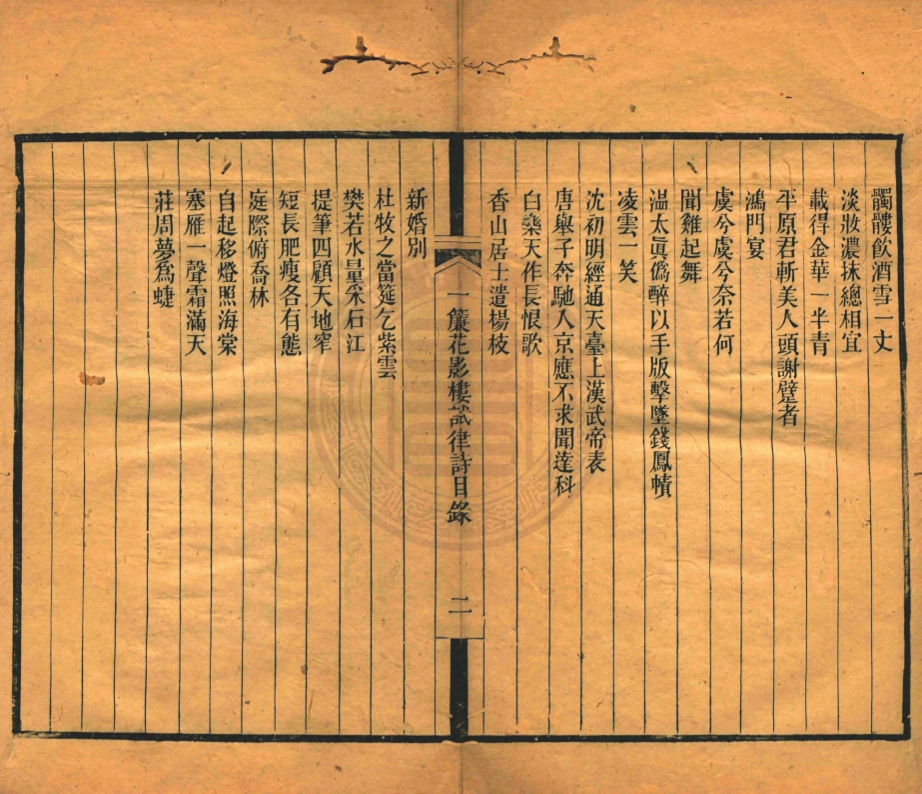 髑髏飲酒雪一丈
淡妝濃抹總相宜
載得金華一半青
平原君斬美人頭謝躄者
鴻門宴
虞兮虞兮奈若何
聞雞起舞
温太眞僞醉以手版擊墜錢鳳幘
凌雲一笑
沈初明經通天臺上漢武帝表
唐舉子奔馳人京應不求聞達科
白樂天作長恨歌
香山居士遣楊枝
一簾花影樓試律詩目錄
二
新婚別
杜牧之當筵乞紫雲
樊若水量采石江
提筆四顧天地窄
短長肥瘦各有態
庭際俯喬林
自起移燈照海棠
塞雁一聲霜滿天
莊周夢爲蜨